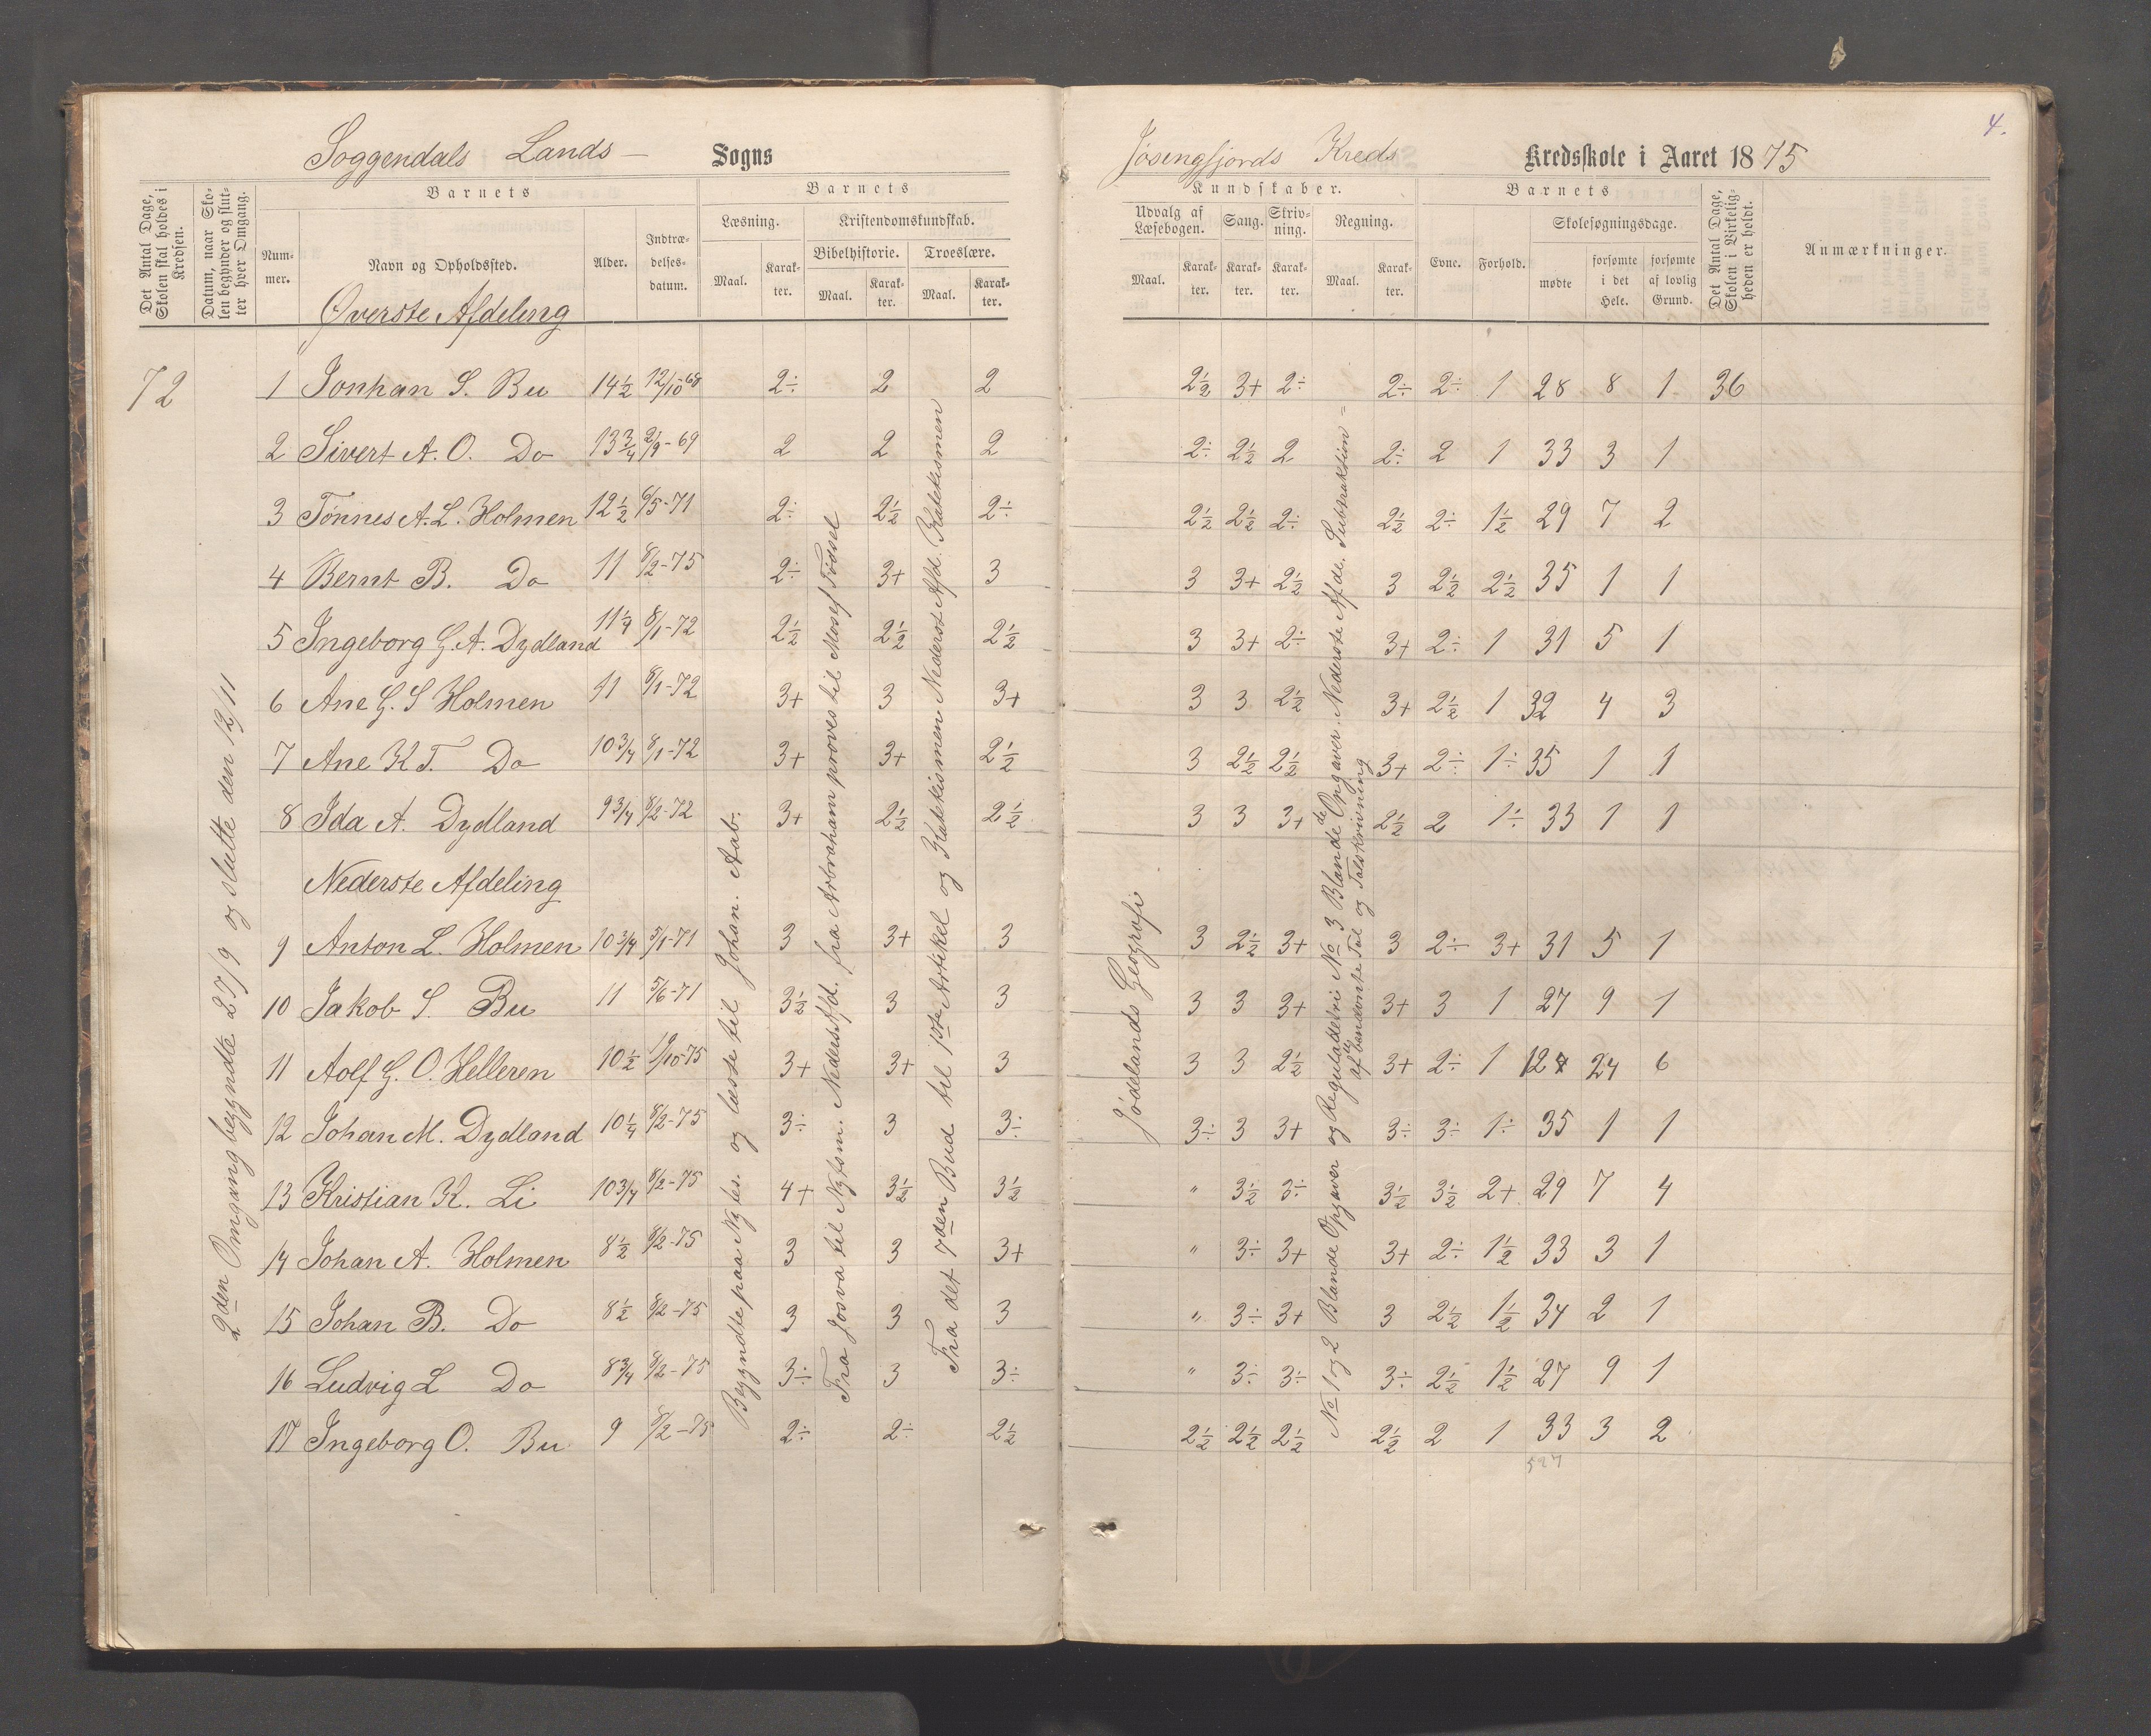 4.
Soggendals Lands – Sogns
Jøsengfjords Kreds Kredsskole i Aaret 1875
Det Antal Dage, Skolen skal holdes i Kredsen.
Datum, naar Skolen begynder og slutter hver Omgang.
Barnets
Nummer.
Navn og Opholdssted.
Alder.
Indtrædelsesdatum.
Barnets
Læsning.
Maal.
Karakter.
Kristendomskundskab.
Bibelhistorie.
Maal.
Karakter.
Troeslære.
Maal.
Karakter.
Kundskaber.
Udvalg af Læsebogen.
Maal.
Karakter.
Sang.
Karakter.
Skrivning.
Karakter.
Regning.
Maal.
Karakter.
Barnets
Evne.
Forhold.
Skolesøgningsdage.
mødte
forsømte i det Hele.
forsømte af lovlig Grund.
Det Antal Dage, Skolen i Virkeligheden er holdt.
Anmærkninger.
Øverste Afdeling
72 1 Jonhan S. Bu 14½ 12/10-68 2÷ 2 2 2½ 3+ 2÷ 2÷ 2÷ 1 28 8 1 36
2 Sivert A. O. Do 13¾ 2/9-69 2 2 2 2÷ 2½ 2 2÷ 2 1 33 3 1
3 Tönnes A. L. Holmen 12½ 6/5-71 2÷ 2½ 2÷ 2½ 2½ 2÷ 2½ 2÷ 1½ 29 7 2
4 Bernt B. Do 11 8/2-75 2÷ 3+ 3 3 3+ 2½ 3 2½ 2½ 35 1 1
5 Ingeborg G. A. Dydland 11¼ 8/1-72 2½ 2½ 2½ 3 3+ 2÷ 3+ 2÷ 1 31 5 1
6 Ane G. S Holmen 11 8/1-72 3+ 3 3+ 3 3 2½ 3+ 2½ 1 32 4 3
7 Ane K T. Do 10¾ 8/1-72 3+ 3+ 2½ 3 2½ 2½ 3+ 2÷ 1÷ 35 1 1
8 Ida A. Dydland 9¾ 8/2-72 3+ 2½ 2½ 3 3 3+ 2½ 2 1÷ 33 1 1
Nederste Afdeling
9 Anton L. Holmen 10¾ 5/1-71 3 3+ 3 3 2½ 3+ 3 2÷ 3+ 31 5 1
10 Jakob S. Bu 11 5/6-71 3½ 3 3 3 3 3+ 3+ 3 1 27 9 1
11 Aolf G. O. Helleren 10½ 3+ 3+ 3 3 3 2½ 3+ 2÷ 1 24 6
12 Johan M. Dydland 10¼ 8/2-75 3÷ 3 3÷ 3÷ 3 3+ 3÷ 3÷ 1÷ 35 1 1
13 Kristian K. Li 10¾ 8/2-75 4+ 3½ 3½ " 3½ 3÷ 3½ 3½ 2+ 29 7 4
14 Johan A. Holmen 8½ 8/2-75 3 3 3+ " 3÷ 3+ 3+ 2÷ 1½ 33 3 1
15 Johan B. Do 8½ 8/2-75 3 3 3 " 3÷ 3+ 3 2½ 1½ 34 2 1
16 Ludvig L Do 8¾ 8/2-75 3÷ 3 3÷ " 3÷ 3÷ 3÷ 2½ 1½ 27 9 1
17 Ingeborg O. Bu 9 8/2-75 2÷ 2÷ 2½ 2½ 2½ 2½ 2½ 2 1 33 3 2
527
2den Omgang begyndte 27/9 og slutte den 12/11
Begyndte paa Nytes. og læste til Johan. Aab.
Fra Josva til Nytsm. Nederst Afd. fra Arbraham proves til Moses Födsel
Fra det 7den Bud til 1ste Artikel og Katekismen Nederst Afd. Katekismen
Jödelands Geografi
No 1 og 2 Blande Opgaver og Reguladetri No 3 Blandede Opgaver. Nederste Afde. Subtraktion =
af benævnte Tal og Talskrivning